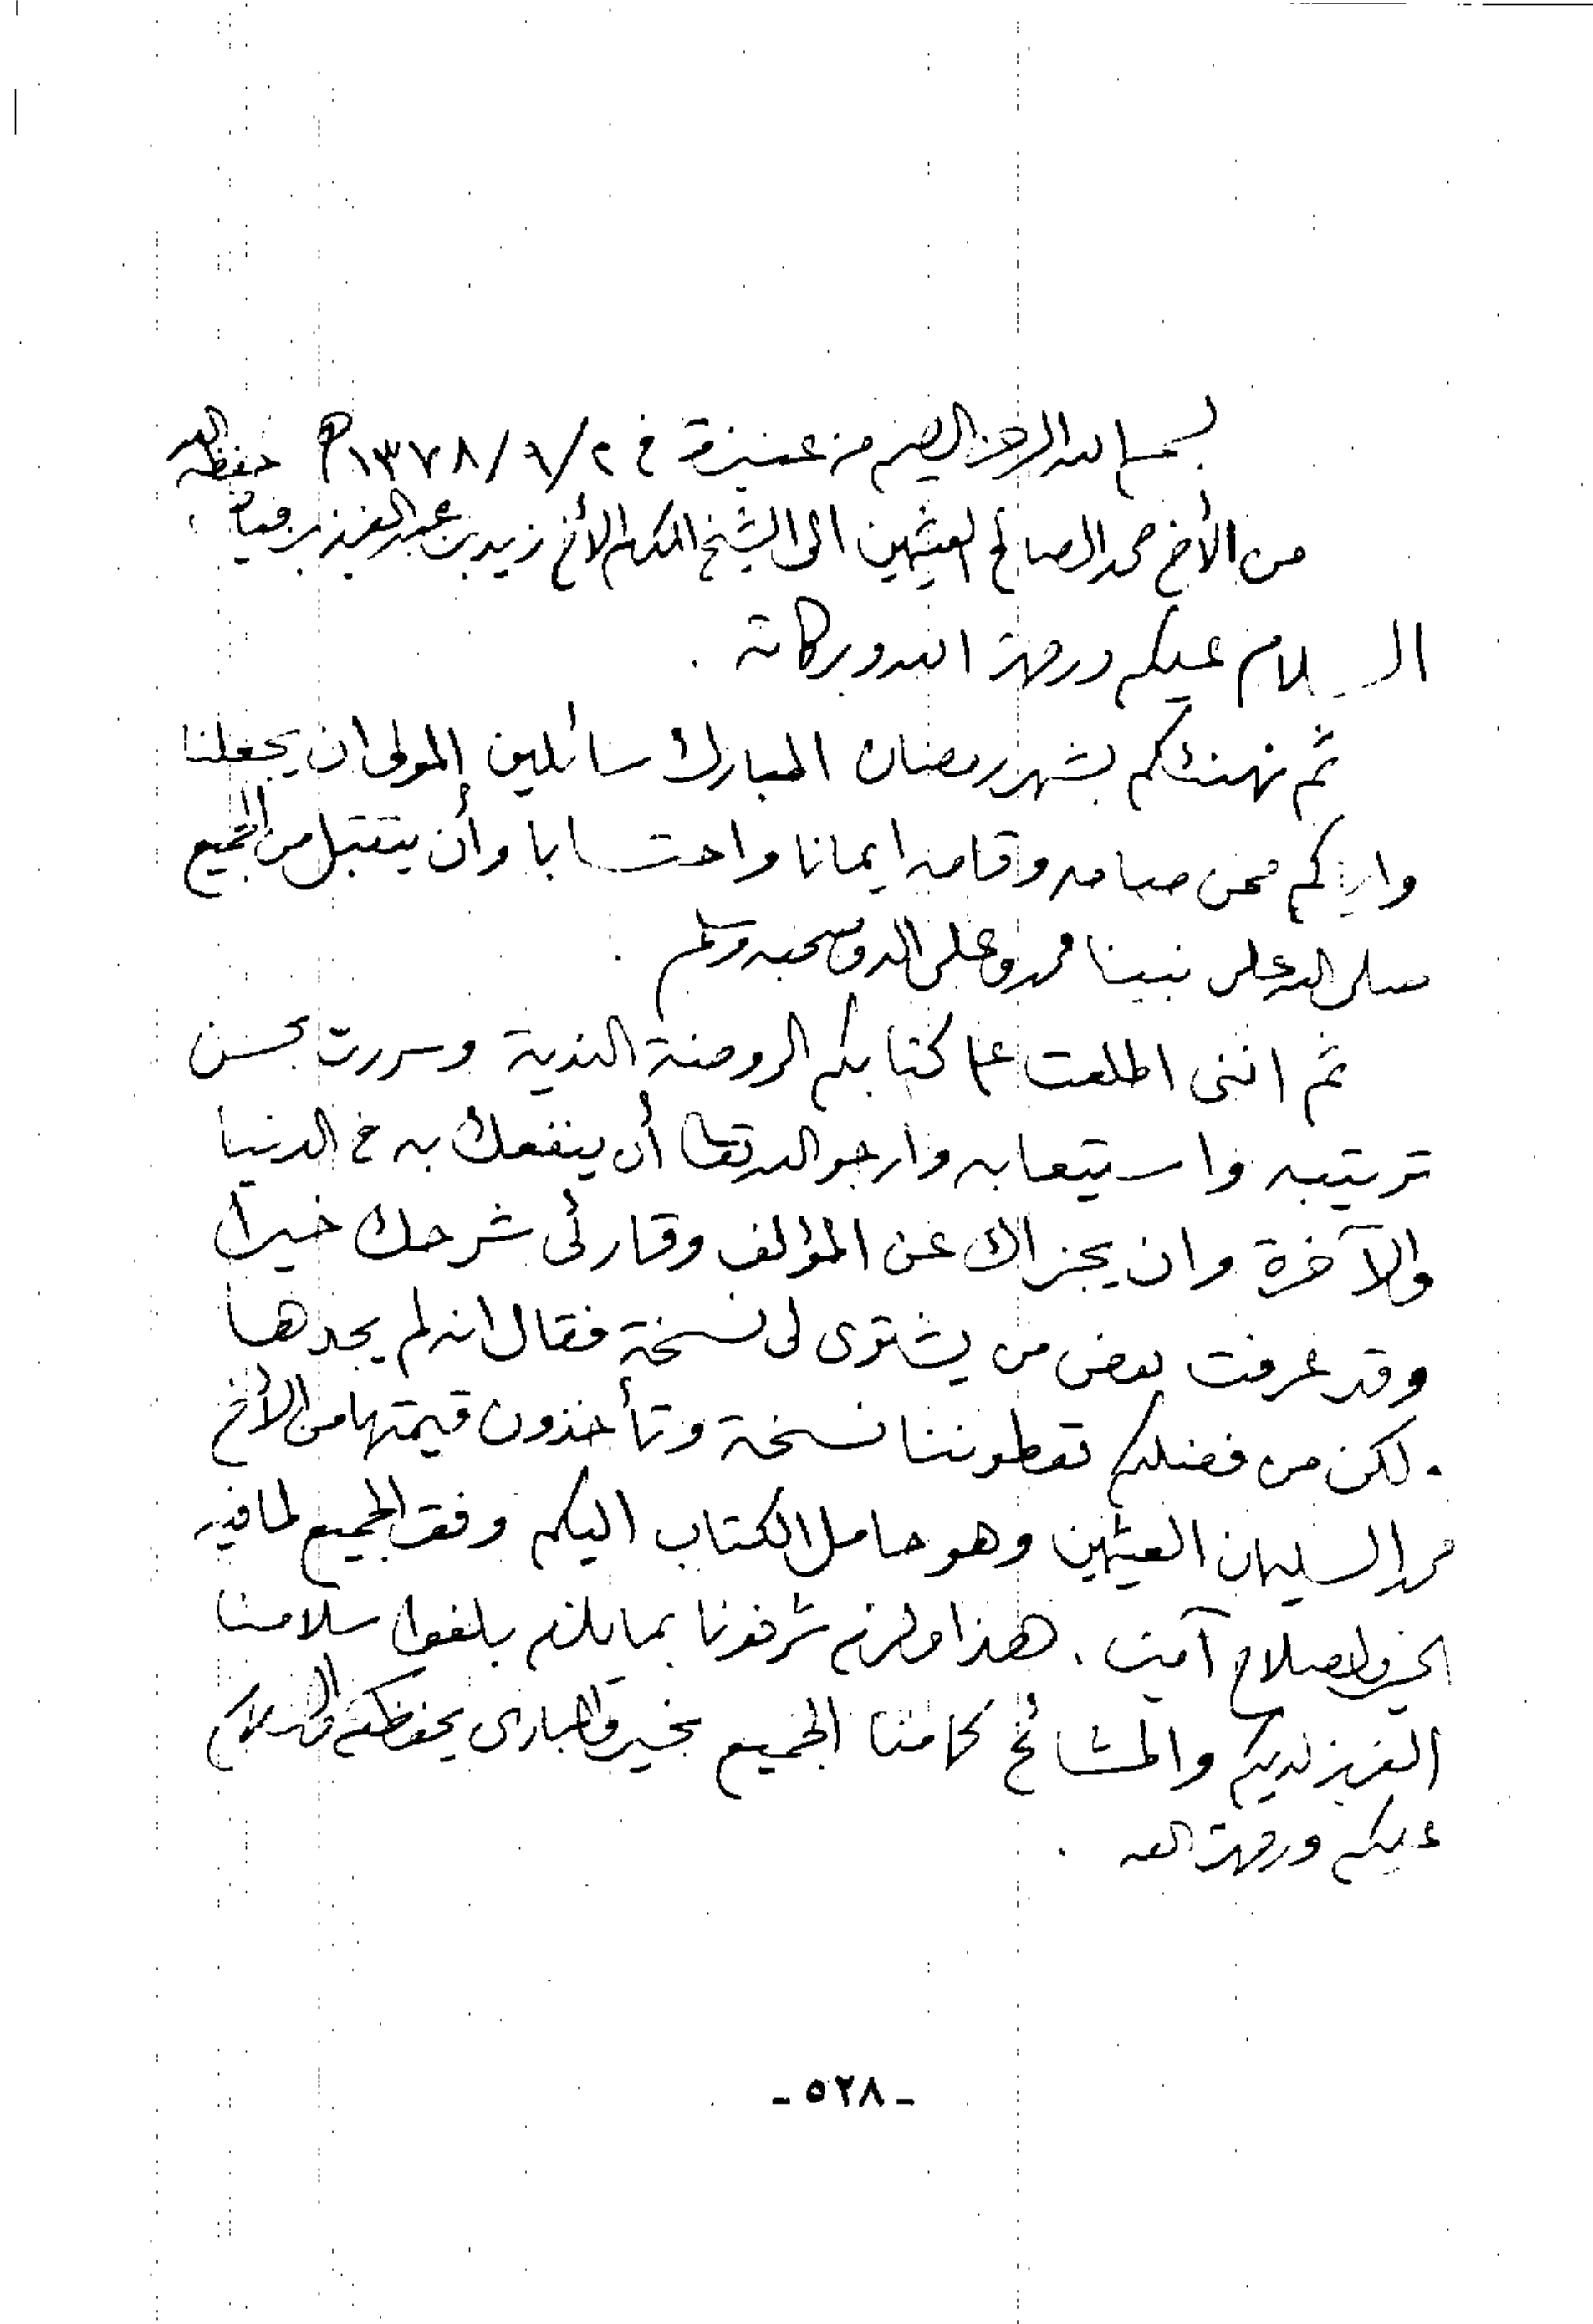 بسم الله الرحمن الرحيم من عنيزة في ٢/٩/١٣٧٨هـ حفظه الله
من الأخ محمد الصالح العثيمين الى الشيخ المكرم الأخ زيد بن عبد العزيز بن فياض
السلام عليكم ورحمة الله وبركاته .
ثم نهنئكم بشهر رمضان المبارك سائلين المولى ان يجعلنا
واياكم ممن صامه وقامه ايمانا واحتسابا وأن يتقبل من الجميع
صلى الله على نبينا محمد وعلى آله وصحبه وسلم .
ثم انني اطلعت على كتابكم الروضة الندية وسررت بحسن
ترتيبه واستيعابه وارجو الله تعالى أن ينفعك به في الدنيا
والآخرة وان يجزاك عن المؤلف وقارئى شرحك خيرا
وقد عرفت بعض من يشتري لى نسخة فقال انه لم يجدها
. لكن من فضلكم تعطوننا نسخة وتأخذون قيمتها من الأخ
محمد السليمان العثيمين وهو حامل الكتاب اليكم وفق الله الجميع لما فيه
الخير والصلاح آمين . هذا ولزم شرفونا بما يلزم بلغوا سلامنا
العزيز لديكم والمشائخ كما منا الجميع بخير والباري يحفظكم والسلام
عليكم ورحمة الله .
- ٥٢٨ -